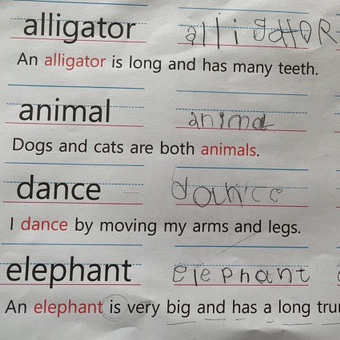 alligator alligatOR
An alligator is long and has many teeth.
animal animal
Dogs and cats are both animals.
dance dance
I dance by moving my arms and legs.
elephant elephant
An elephant is very big and has a long